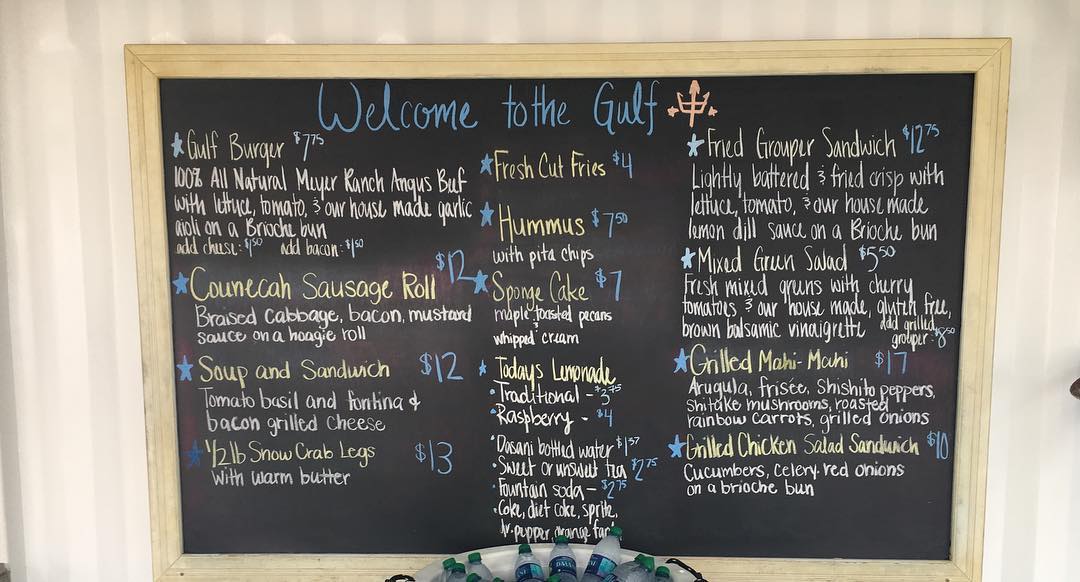 Welcome to the Gulf
Gulf Burger $7.75
100% All Natural Meyer Ranch Angus Beef
with lettuce, tomato, & our house made garlic
aioli on a Brioche bun
add cheese: $1.50 add bacon: $1.50
Counecah Sausage Roll $12
Braised Cabbage, bacon, mustard
sauce on a hoagie roll
Soup and Sandwich $12
Tomato basil and fontina &
bacon grilled cheese
1/2 lb Snow Crab Legs $13
with warm butter
Fresh Cut Fries $4
Hummus $7.50
with pita chips
Sponge Cake $7
maple toasted pecans
&
whipped cream
Todays Lemonade
• Traditional - $3.75
• Raspberry - $4
• Dasani bottled water $1.37
• Sweet or unsweet tea $2.75
• Fountain soda - $2.75
• Coke, diet coke, sprite,
dr. pepper, orange fanta
Fried Grouper Sandwich $12.75
Lightly battered & fried crisp with
lettuce, tomato, & our house made
lemon dill sauce on a Brioche bun
Mixed Green Salad $5.50
Fresh mixed greens with cherry
tomatoes & our house made, gluten free,
brown balsamic vinaigrette add grilled
grouper: $8.50
Grilled Mahi-Mahi $17
Arugula, frisée, Shishito peppers,
Shitake mushrooms, roasted
rainbow carrots, grilled onions
Grilled Chicken Salad Sandwich $10
Cucumbers, celery, red onions
on a brioche bun